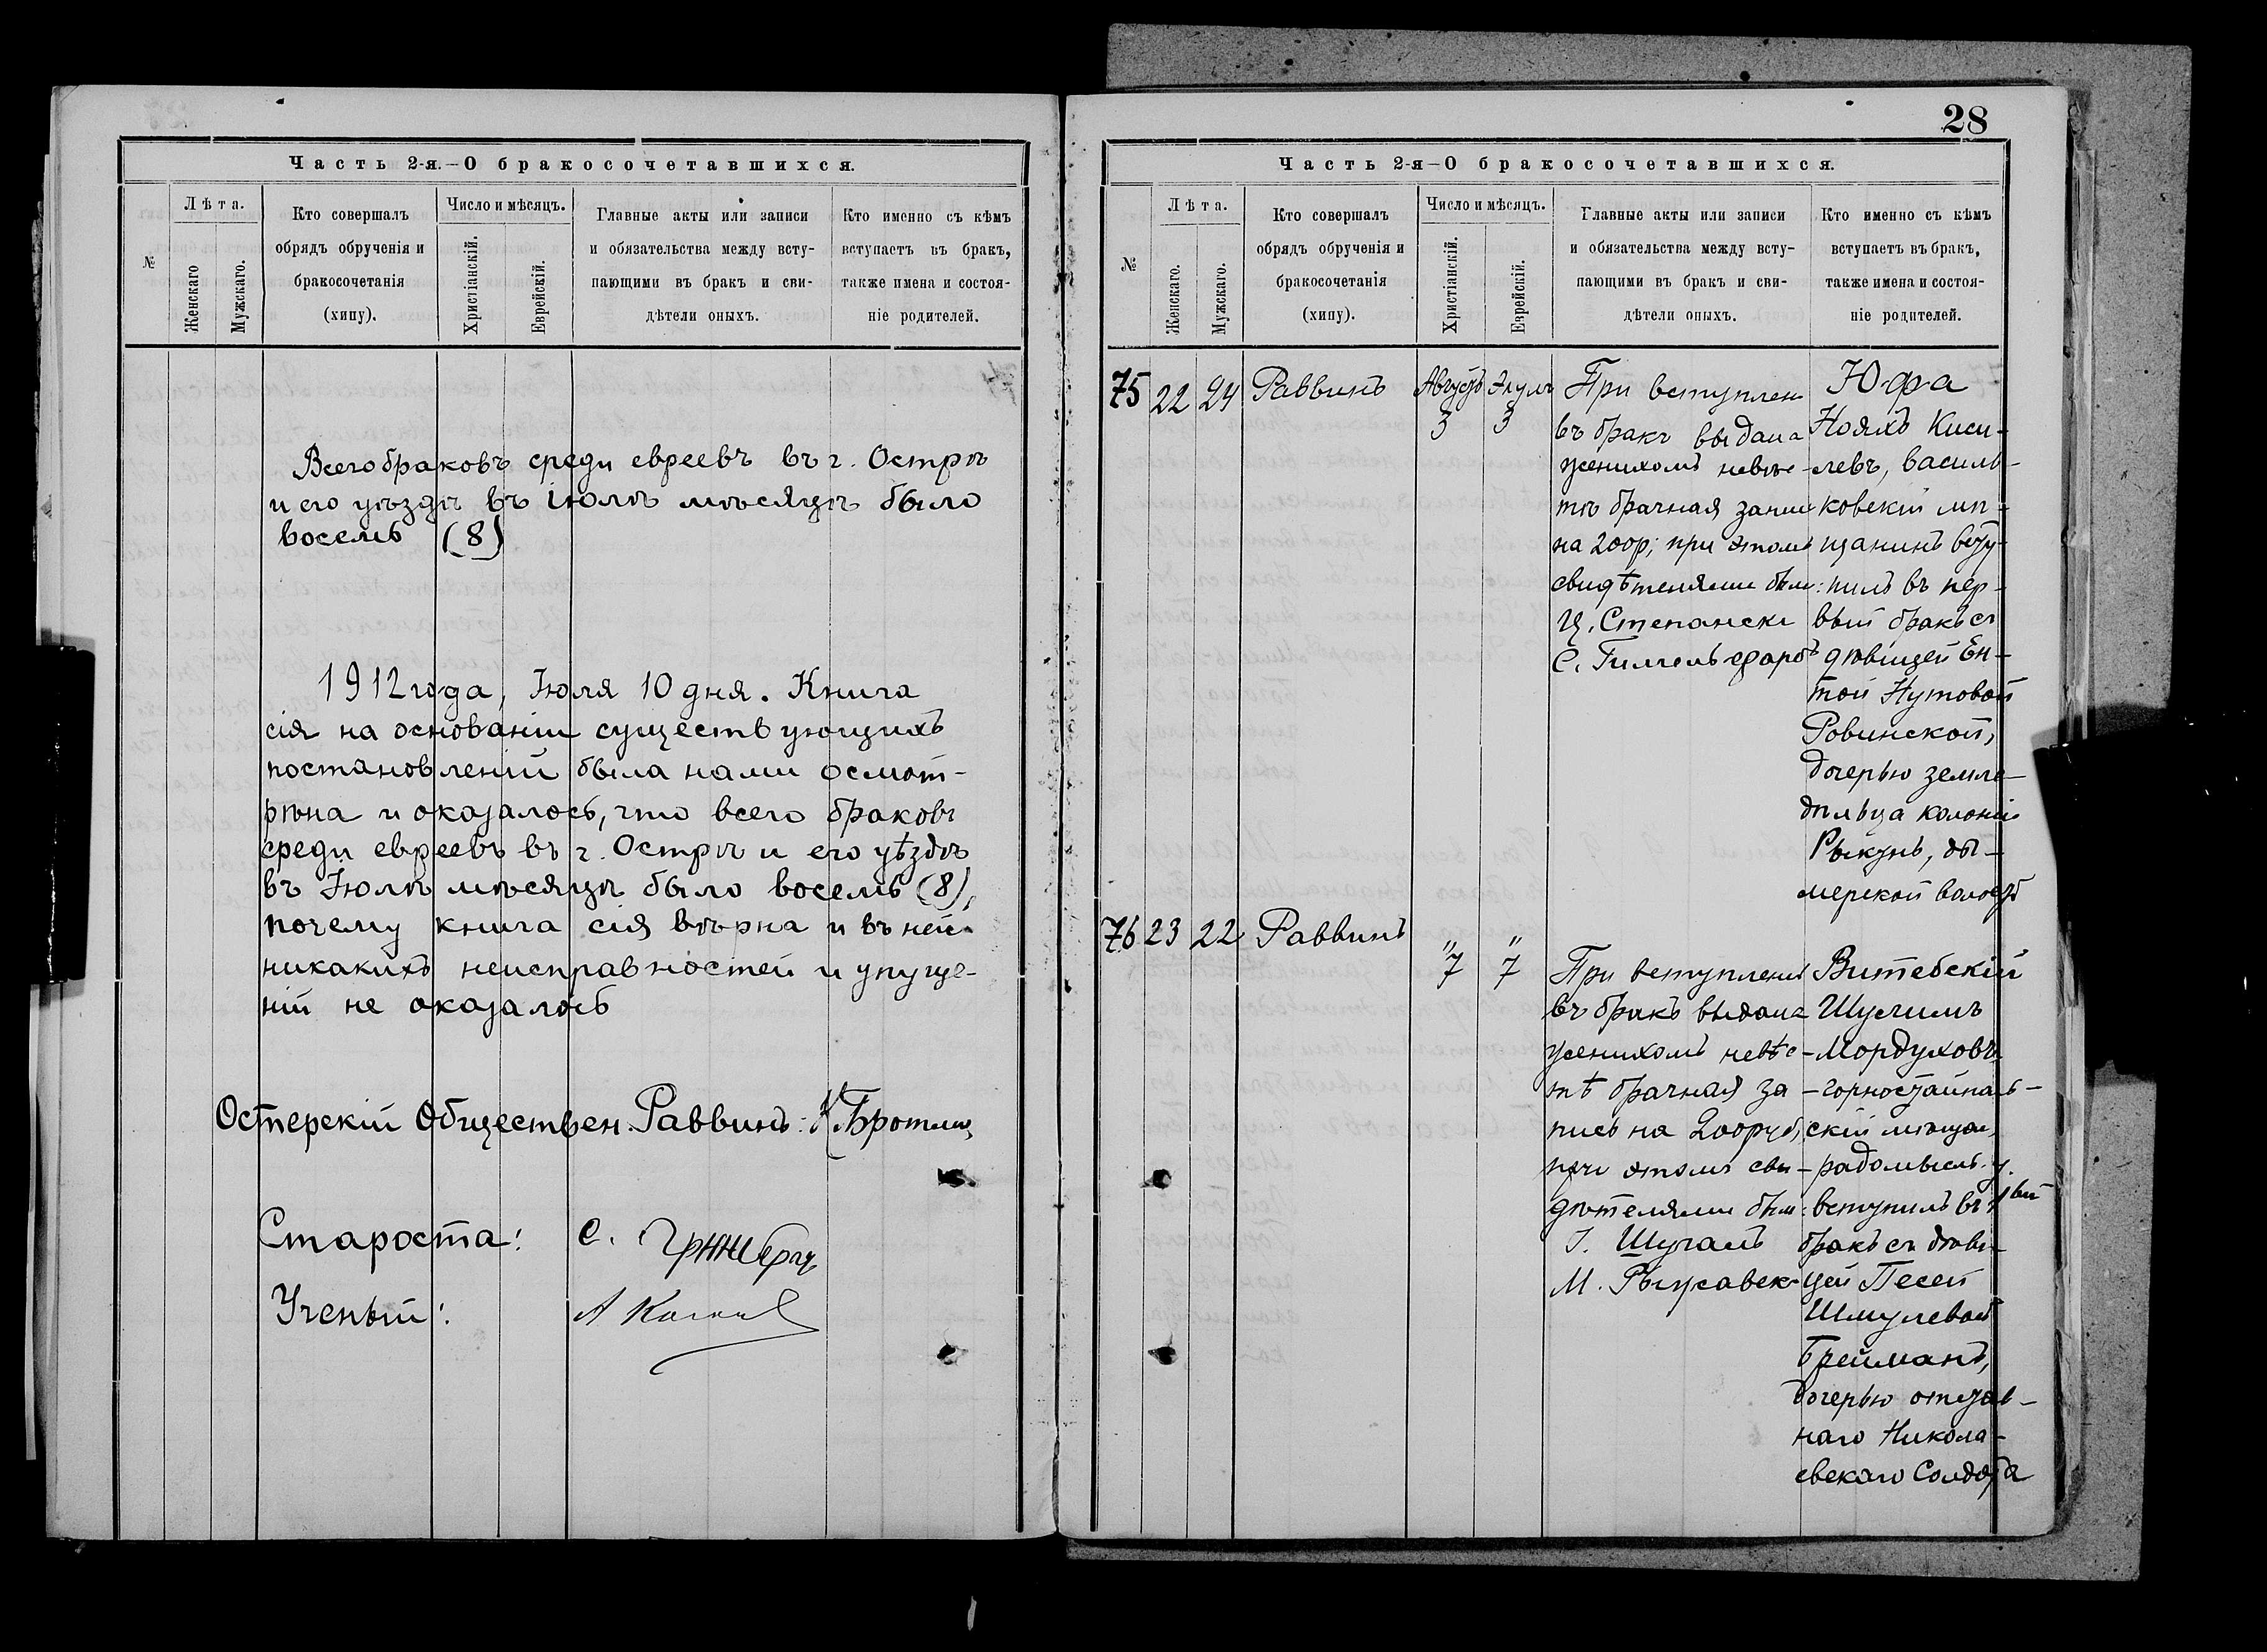 Часть 2-я.—О бракосочетавшихся.
№
Лѣта.
Женскаго
Мужскаго.
Кто совершалъ
обрядъ обрученія и
бракосочетанія
(хипу).
Число и мѣсяцъ.
Христіанскій.
Еврейскій.
Главные акты или записи
и обязательства между всту-
пающими въ бракъ и сви-
дѣтели оныхъ.
Кто именно съ кѣмъ
вступаетъ въ бракъ,
также имена и состоя-
ніе родителей.
Всего браковъ среди евреевъ въ г. Острѣ
и его уѣздѣ въ іюлѣ мѣсяцѣ было
восемь (8)
1912 года, Іюля 10 дня. Книга
сія на основаніи существующихъ
постановленій была нами осмот-
рѣна и оказалось, что всего браковъ
среди евреевъ въ г. Острѣ и его уѣздѣ
въ Іюлѣ мѣсяцѣ было восемь (8),
почему книга сія вѣрна и въ ней
никакихъ неисправностей и упуще-
ній не оказалось
Остерскій Обществен. Раввинъ:
Староста: С.
Ученый: А
28
Часть 2-я—О бракосочетавшихся.
№
Лѣта.
Женскаго.
Мужскаго.
Кто совершалъ
обрядъ обрученія и
бракосочетанія
(хипу).
Число и мѣсяцъ.
Христіанскій.
Еврейскій.
Главные акты или записи
и обязательства между всту-
пающими въ бракъ и сви-
дѣтели оныхъ.
Кто именно съ кѣмъ
вступаетъ въ бракъ,
также имена и состоя-
ніе родителей.
75 22 24 Раввинъ
Августъ
3
Элулъ
3
При вступлен
въ бракъ выдана
женихомъ невѣс-
тѣ брачная запи
на 200 р; при этомъ
свидѣтелями были:
Ц. Степанск
С. Гимельфарбъ
Юфа
Нояхъ Киси-
левъ, василь-
ковскій мѣ-
щанинъ всту-
пилъ въ пер-
вый бракъ съ
дѣвицей Ен-
той Нутовой
Ровинской,
дочерью земле-
дѣльца колоніи
Рыкунь, ды-
мерской волост
76 23 22 Раввинъ
"
7
"
7
При вступленіи
въ бракъ выдана
женихомъ невѣс-
тѣ брачная за-
пись на 200 руб;
при этомъ сви-
дѣтелями были:
І. Шугалъ
М. Рыжавск
Витебскій
Шулимъ
Мордуховъ
горностайполь-
скій мѣщан,
радомысль. у.
вступилъ въ 1вый
бракъ съ дѣви-
цей Песей
Шмулевой
Брейманъ,
дочерью отстав-
наго Никола-
евскаго Солдата